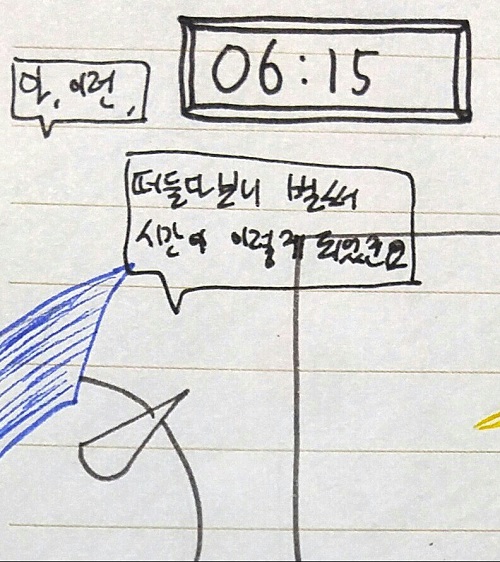 06:15
아, 이런,
떠들다보니 벌써
시간이 이렇게 되었군요